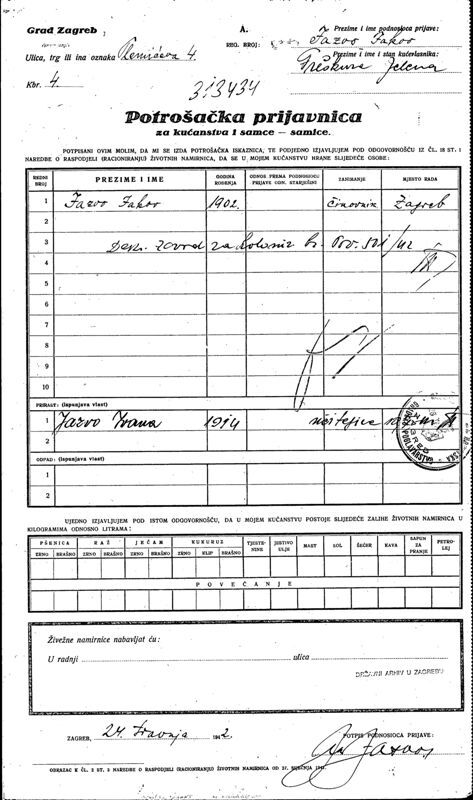 Grad Zagreb
A.
REG. BROJ:
Prezime i ime podnosioca prijave:
Jazvo Jakov
Ulica, trg ili ina oznaka Klemićeva 4.
Prezime i ime i stan kućevlasnika:
Greškura Jelena
Kbr. 4.
313434
Potrošačka prijavnica
za kućanstva i samce — samice.
POTPISANI OVIM MOLIM, DA MI SE IZDA POTROŠAČKA ISKAZNICA, TE PODJEDNO IZJAVLJUJEM POD ODGOVORNOŠĆU IZ ČL. 18 ST. 1
NAREDBE O RASPODJELI (RACIONIRANJU) ŽIVOTNIH NAMIRNICA, DA SE U MOJEM KUĆANSTVU HRANE SLIJEDEĆE OSOBE:
REDNI BROJ PREZIME I IME GODINA ROĐENJA ODNOS PREMA PODNOSIOCU PRIJAVE ODN. STARJEŠINI ZANIMANJE MJESTO RADA
1 Jazvo Jakov 1902. činovnik Zagreb
2
3 za Koloniz
4
5
6
7
8
9
10
PRIRAST: (ispunjava vlast)
1 Jazvo Ivana 1914 učiteljica
2
OTPAD: (ispunjava vlast)
1
2
UJEDNO IZJAVLJUJEM POD ISTOM ODGOVORNOŠĆU, DA U MOJEM KUĆANSTVU POSTOJE SLIJEDEĆE ZALIHE ŽIVOTNIH NAMIRNICA U
KILOGRAMIMA ODNOSNO LITRAMA:
PŠENICA RAŽ JEČAM KUKURUZ TJESTENINE JESTIVO ULJE MAST SOL ŠEĆER KAVA SAPUN ZA PRANJE PETROLEJ
ZRNO BRAŠNO ZRNO BRAŠNO ZRNO BRAŠNO ZRNO KLIP BRAŠNO
POVEĆANJE
Živežne namirnice nabavljat ću:
U radnji ulica
DRŽAVNI ARHIV U ZAGREBU
ZAGREB, 24. travnja 1942.
POTPIS PODNOSIOCA PRIJAVE:
Jazvo
OBRAZAC K ČL. 2 ST. 2 NAREDBE O RASPODJELI (RACIONIRANJU) ŽIVOTNIH NAMIRNICA OD 27. SIJEČNJA 194